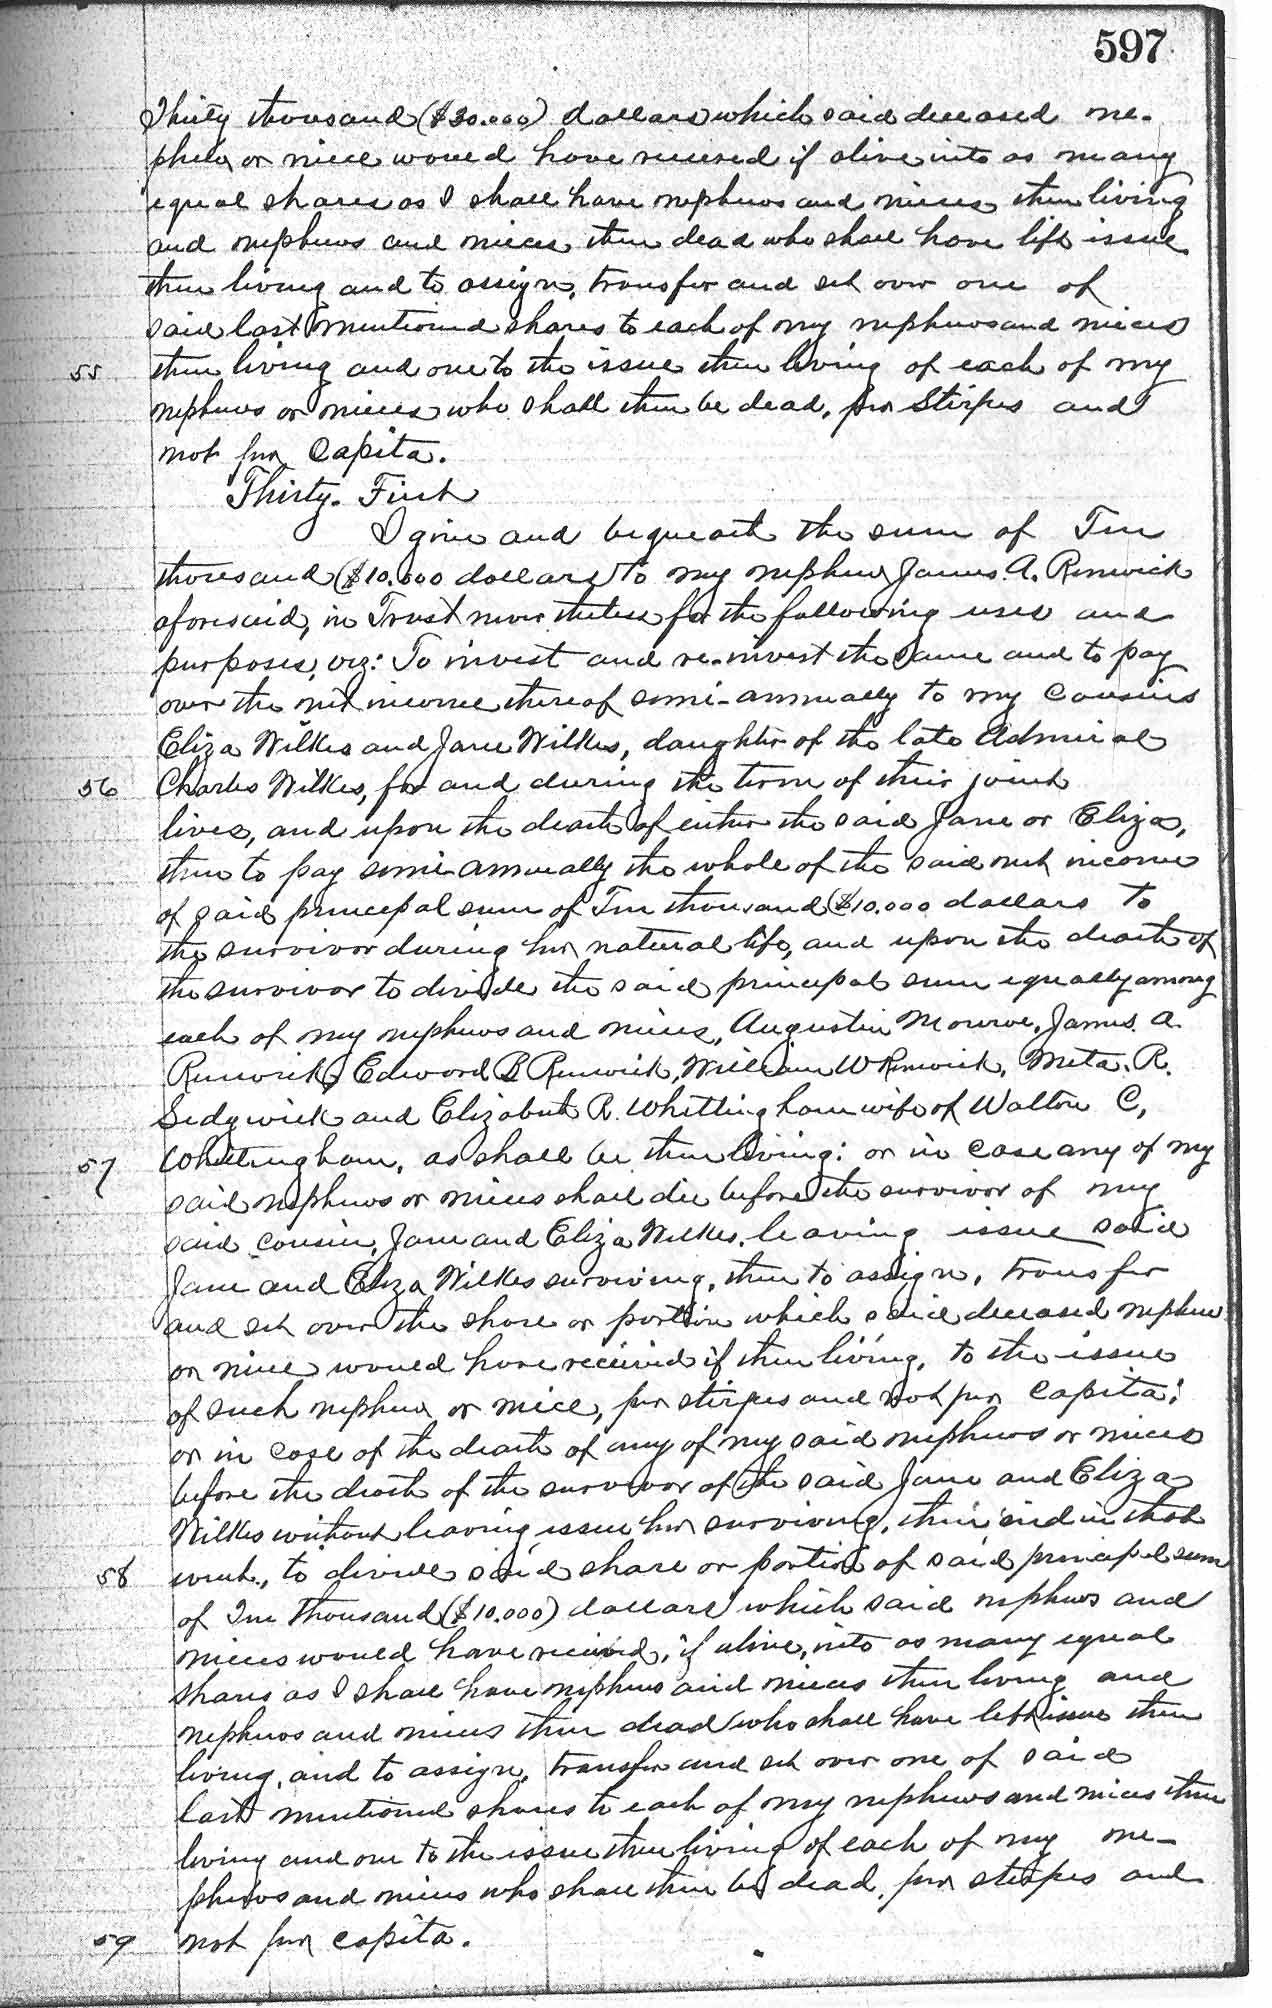 597
Thirty thousand ($30.000) dollars which said deceased ne-
phew or niece would have received if alive into as many
equal shares as I shall have nephews and nieces then living
and nephews and nieces then dead who shall have left issue
then living and to assign, transfer and set over one of
said last mentioned shares to each of my nephews and nieces
55 then living and one to the issue then living of each of my
nephews or nieces who shall then be dead, per Stirpes and
not per Capita.
Thirty-First
I give and bequeath the sum of Ten
thousand ($10.000 dollars) to my nephew James A. Renwick
aforesaid, in Trust nevertheless for the following uses and
purposes, viz: To invest and re-invest the same and to pay
over the net income thereof semi-annually to my Cousins
Eliza Wilkes and Jane Wilkes, daughter of the late Admiral
56 Charles Wilkes, for and during the term of their joint
lives, and upon the death of either the said Jane or Eliza,
then to pay semi-annually the whole of the said net income
of said principal sum of Ten thousand ($10.000 dollars to
the survivor during her natural life, and upon the death of
the survivor to divide the said principal sum equally among
each of my nephews and nieces, Augustin Monroe, James. A.
Renwick, Edward B Renwick, William W Renwick, Meta. R.
Sedgwick and Elizabeth R. Whittingham wife of Walton C,
57 Whittingham, as shall be then living: or in case any of my
said nephews or nieces shall die before the survivor of my
said cousin, Jane and Eliza Wilkes, leaving issue said
Jane and Eliza Wilkes surviving, then to assign, transfer
and set over the share or portion which said deceased nephew
or niece would have received if then living, to the issue
of such nephew or niece, per stirpes and not per Capita;
or in case of the death of any of my said nephews or nieces
before the death of the survivor of the said Jane and Eliza
Wilkes without leaving issue her surviving, then and in that
58 event, to divide said share or portion of said principal sum
of Ten thousand ($10.000) dollars which said nephews and
nieces would have received, if alive, into as many equal
shares as I shall have nephews and nieces then living and
nephews and nieces then dead who shall have left issue then
living, and to assign, transfer and set over one of said
last mentioned shares to each of my nephews and nieces then
living and one to the issue then living of each of my ne-
phews and nieces who shall then be dead, per stirpes and
59 not per capita.